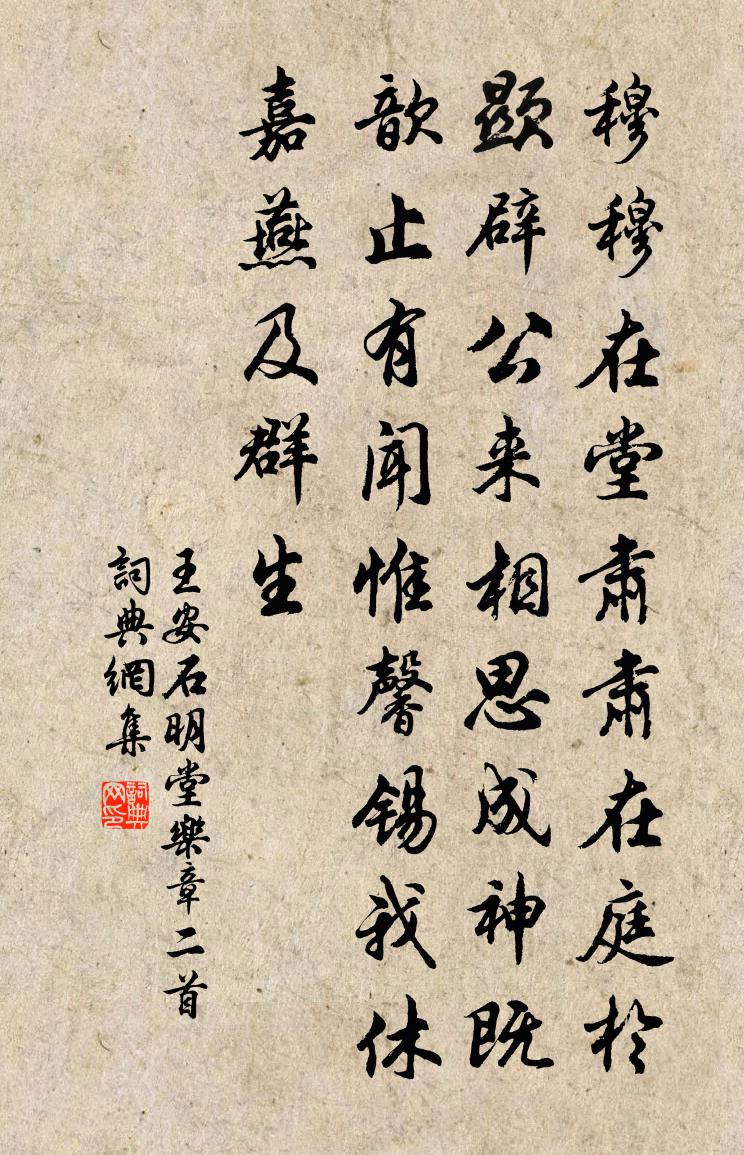 穆穆在堂肅肅在庭於
顯辟公来相思成神既
歆止有聞惟馨錫我休
嘉燕及群生
王安石明堂樂章二首
詞典網集
詞典网印